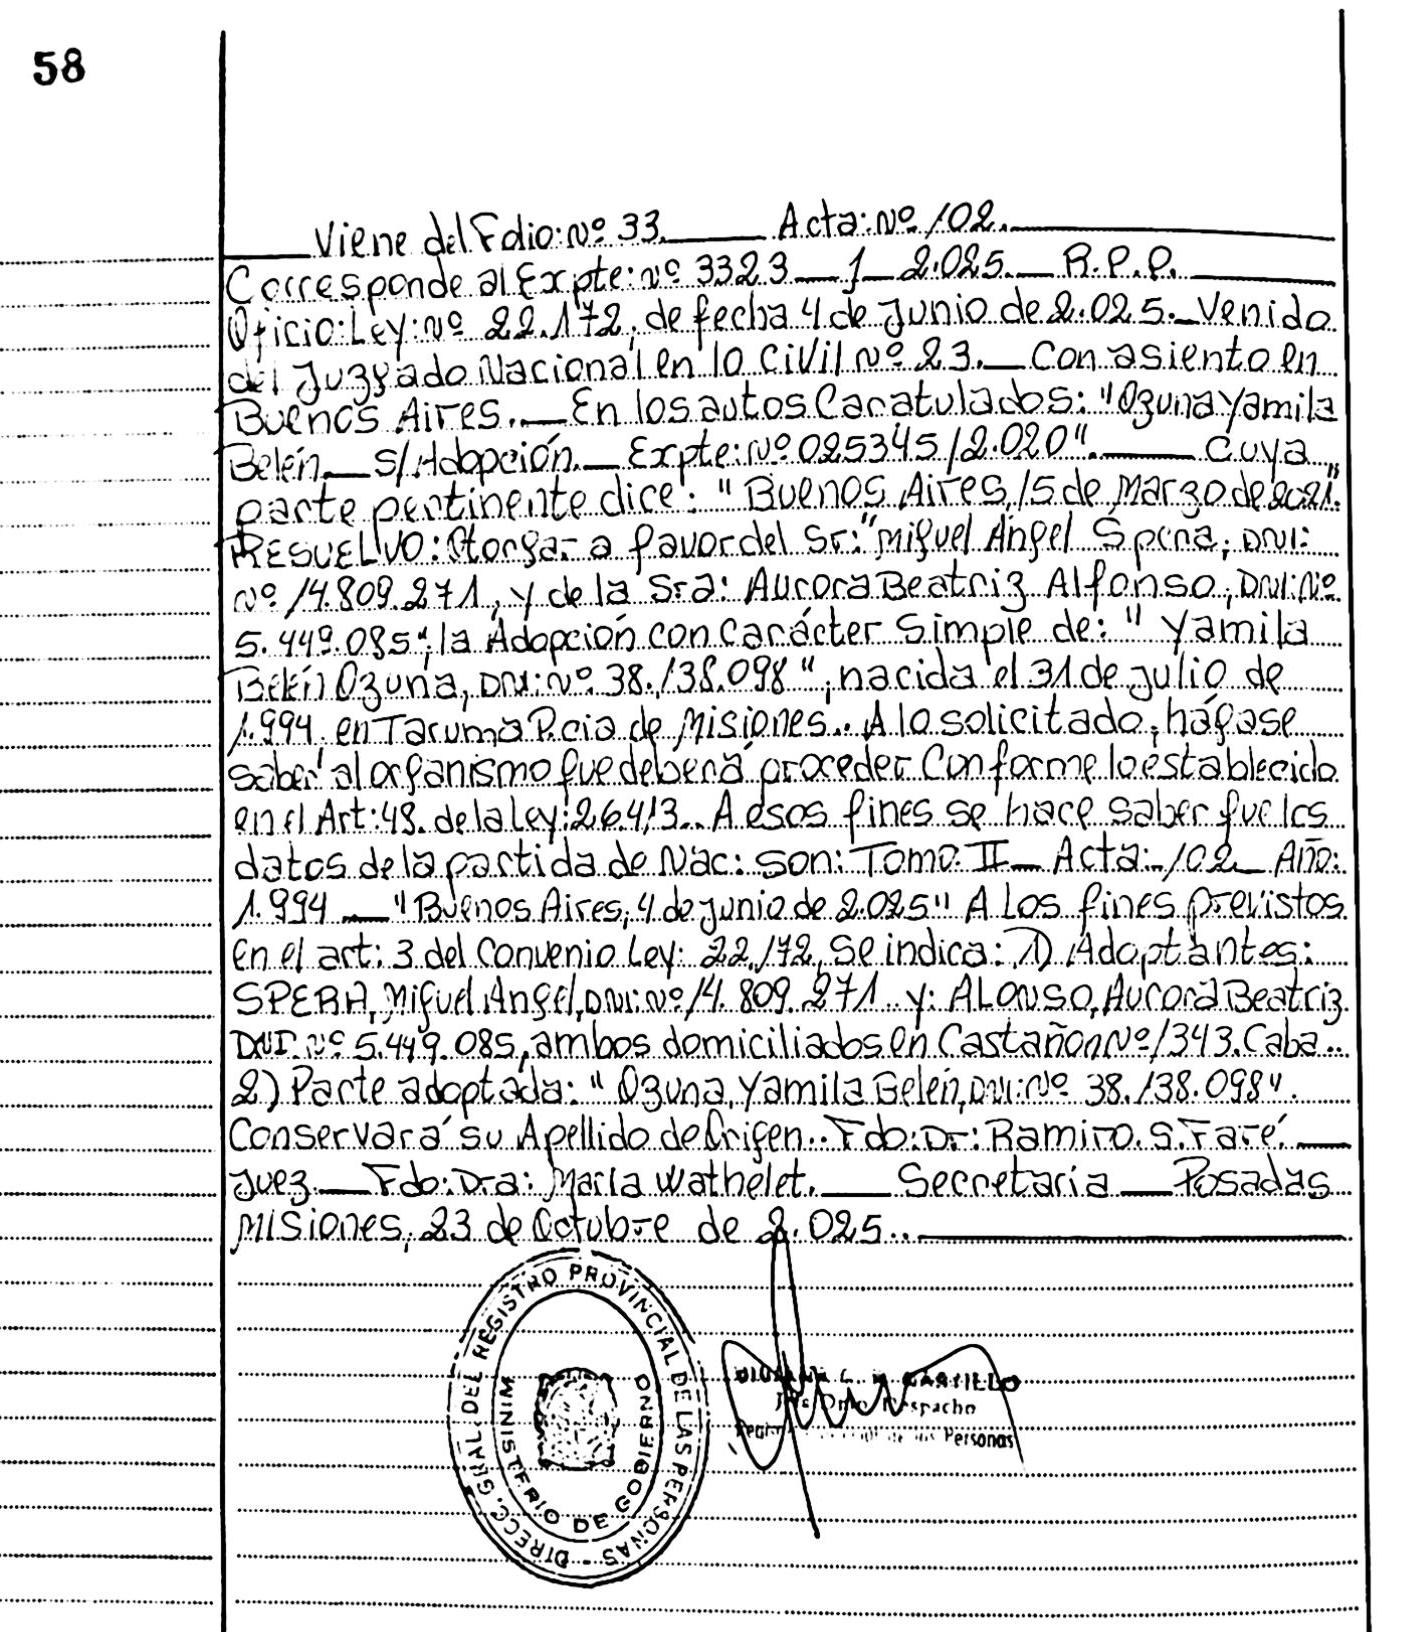 58
Viene del Folio: Nº 33. Acta: Nº 102.
Corresponde al Expte: Nº 3323 / 2.025. R.P.P.
Oficio: Ley: Nº 22.172, de fecha 4 de Junio de 2.025. Venido
del Juzgado Nacional en lo Civil Nº 23. Con asiento en
Buenos Aires. En los autos Caratulados: "Ozuna Yamila
Belén S/Adopción. Expte: Nº 025345/2.020". Cuya
parte pertinente dice: "Buenos Aires, 15 de Marzo de 2021."
RESUELVO: Otorgar a favor del Sr: "Miguel Angel Spera, DNI:
Nº 14.809.271, y de la Sra: Aurora Beatriz Alfonso, DNI: Nº
5.449.085", la Adopción con carácter Simple de: "Yamila
Belén Ozuna, DNI: Nº 38.138.098", nacida el 31 de julio de
1.994 en Taruma Pcia de Misiones.. A lo solicitado, hágase
saber al organismo que deberá proceder Conforme lo establecido
en el Art: 48. de la Ley: 26.413.. A esos fines se hace saber que los
datos de la partida de Nac: son: Tomo: II Acta: 102 Año:
1.994 "Buenos Aires, 4 de junio de 2.025" A Los fines previstos
En el art: 3 del Convenio Ley: 22.172, Se indica: 1) Adoptantes:
SPERA, Miguel Angel, DNI: Nº 14.809.271 y: ALONSO, Aurora Beatriz
DNI. Nº 5.449.085, ambos domiciliados en Castañon Nº 1343. Caba..
2) Parte adoptada: "Ozuna, Yamila Belén, DNI: Nº 38.138.098".
Conservará su Apellido de Origen.. Fdo: Dr: Ramiro. S. Faré.
Juez Fdo: Dra: María Wathelet. Secretaria Posadas
Misiones, 23 de Octubre de 2.025..
DIRECC. GRAL. DEL REGISTRO PROVINCIAL DE LAS PERSONAS -
MINISTERIO DE GOBIERNO
CASTILLO
Despacho
Personas